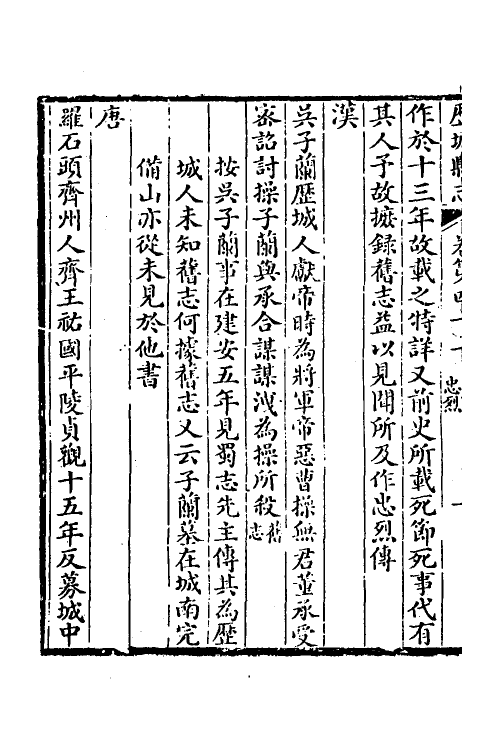 歷城縣志 卷第四十 忠烈 一
作於十三年故載之特詳又前史所載死節死事代有
其人予故摭錄舊志益以見聞所及作忠烈傳
漢
吳子蘭歷城人獻帝時為將軍帝惡曹操無君董承受
密詔討操子蘭與承合謀謀洩為操所殺舊志
按吳子蘭事在建安五年見蜀志先主傳其為歷
城人未知舊志何據舊志又云子蘭墓在城南完
備山亦從未見於他書
唐
羅石頭齊州人齊王祐國平陵貞觀十五年反募城中